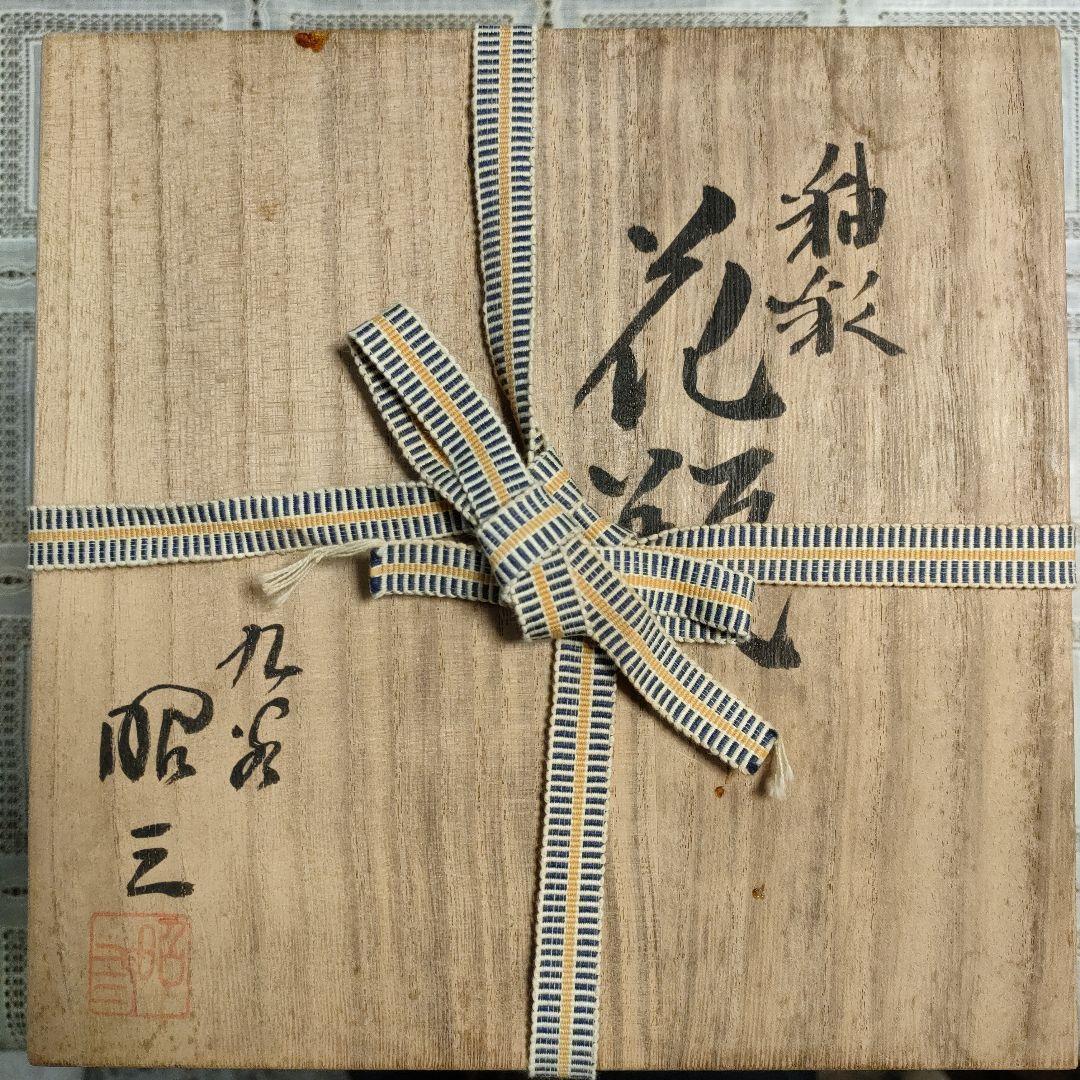 釉彩
花瓶
九谷
昭三
昭三